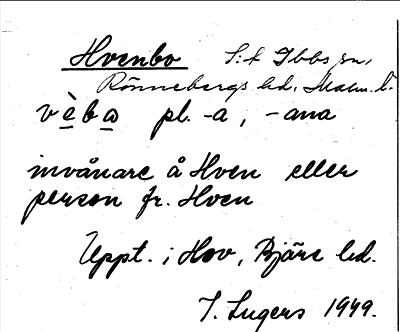 Hvenbo S:t Ibbs sn,
Rönnebergs hd, Malm. l.
vèba pl. -a, -ana
invånare å Hven eller
person fr. Hven
Uppt. i Hov, Bjäre hd.
I. Lugers 1949.